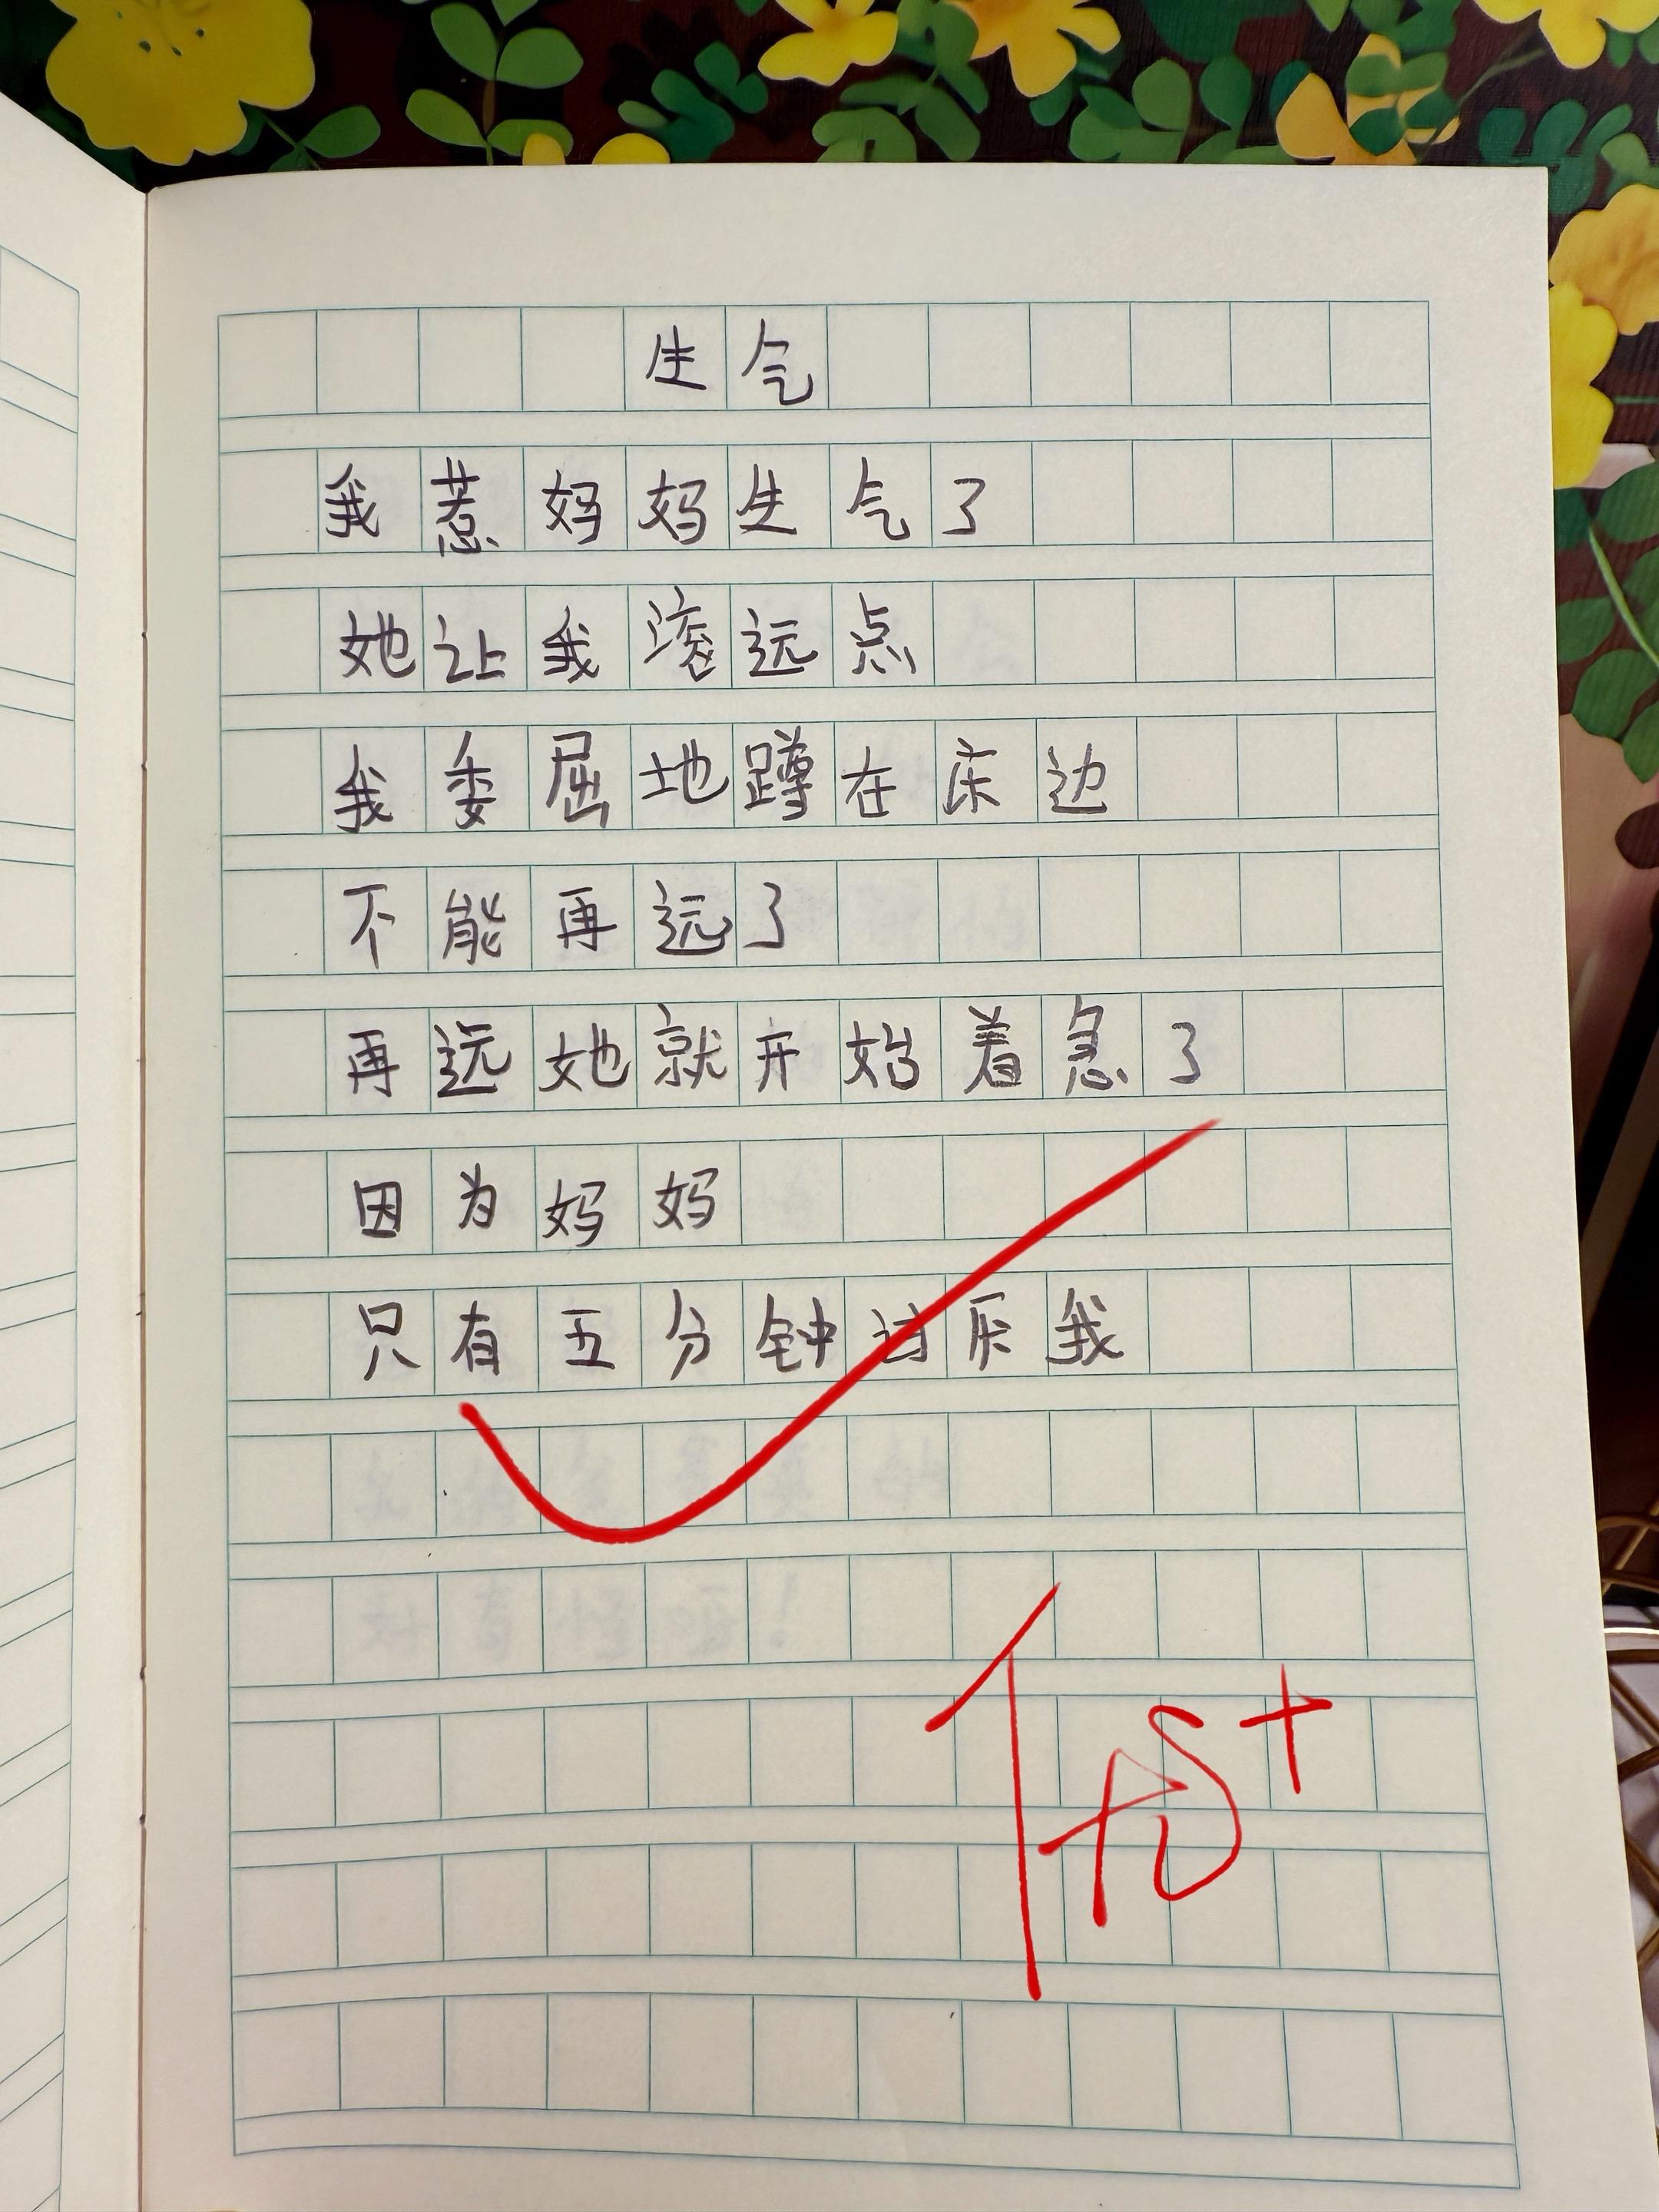 生气
我惹妈妈生气了
她让我滚远点
我委屈地蹲在床边
不能再远了
再远她就开始着急了
因为妈妈
只有五分钟讨厌我